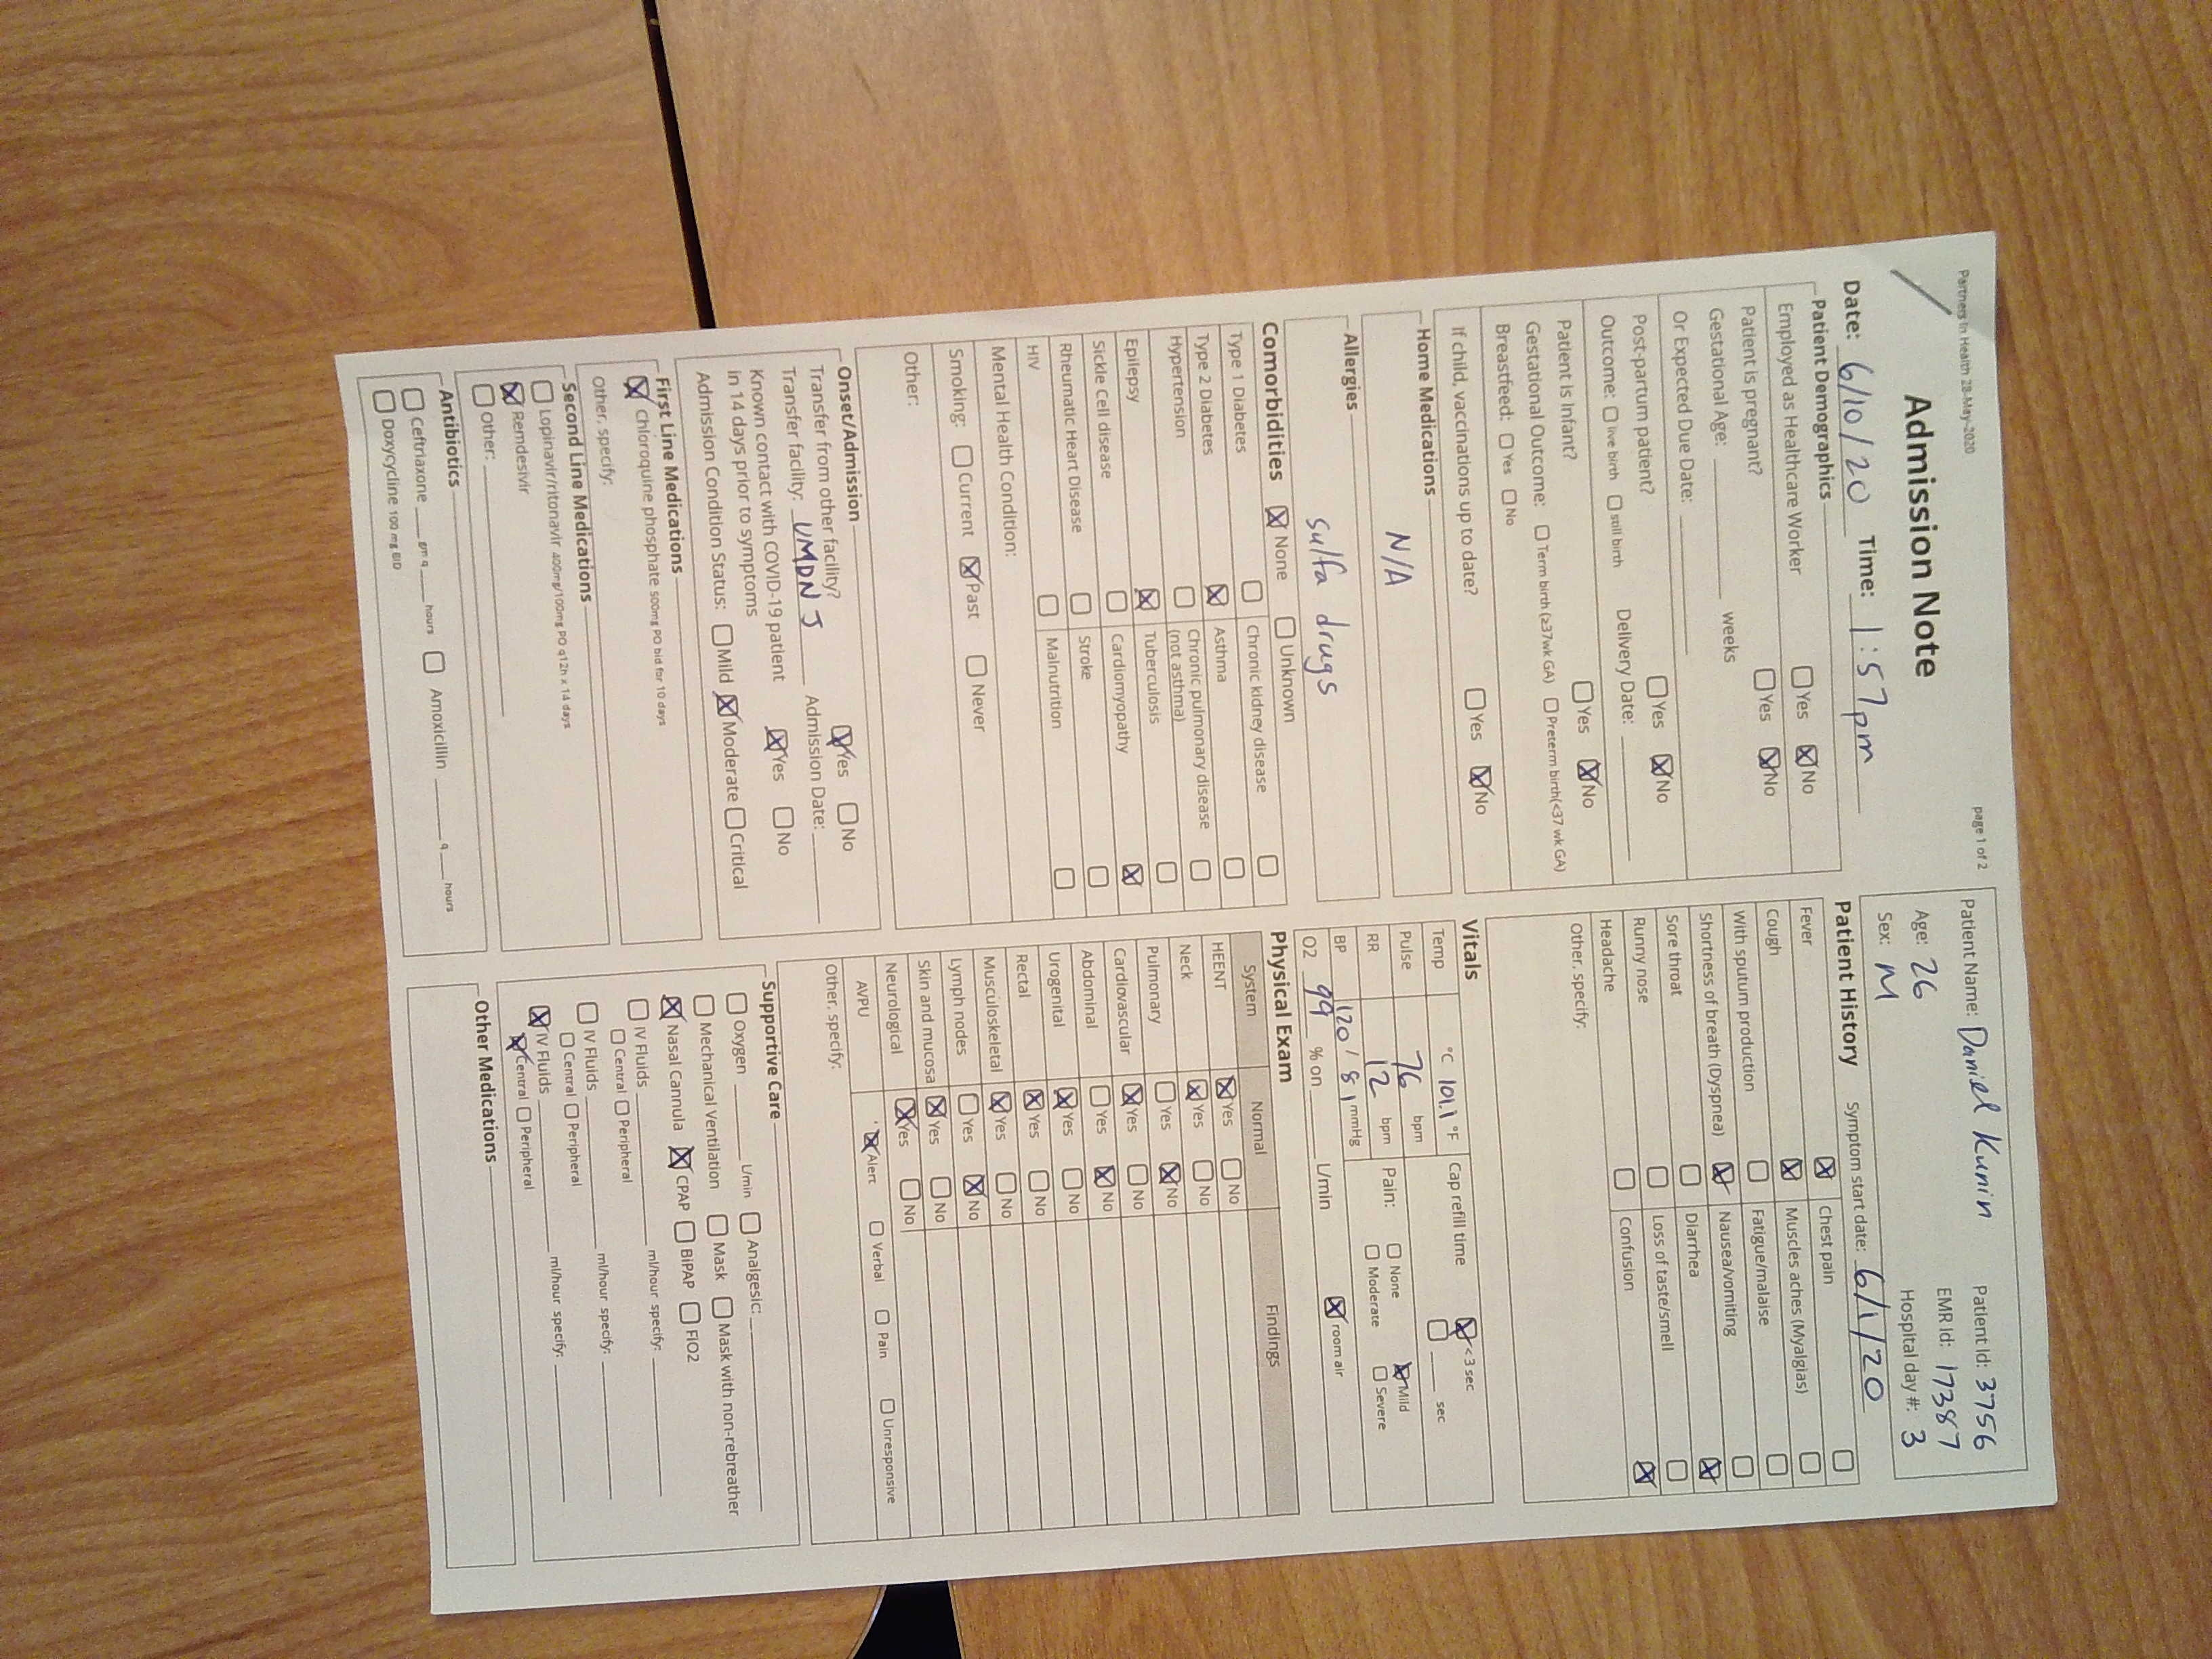 Partners In Health 28-May-2020
page 1 of 2
Admission Note
Date: 6/10/20 Time: 1:57pm
Patient Demographics
Employed as Healthcare Worker ☐ Yes ☒ No
Patient is pregnant? ☐ Yes ☒ No
Gestational Age: ______ weeks
Or Expected Due Date: ______
Post-partum patient? ☐ Yes ☒ No
Outcome: ☐ live birth ☐ still birth Delivery Date: ______
Patient is Infant? ☐ Yes ☒ No
Gestational Outcome: ☐ Term birth (≥37wk GA) ☐ Preterm birth(<37 wk GA)
Breastfeed: ☐ Yes ☐ No
If child, vaccinations up to date? ☐ Yes ☒ No
Home Medications
N/A
Allergies
sulfa drugs
Comorbidities ☒ None ☐ Unknown
Type 1 Diabetes ☐ Chronic kidney disease ☐
Type 2 Diabetes ☒ Asthma ☐
Hypertension ☐ Chronic pulmonary disease (not asthma) ☐
Epilepsy ☒ Tuberculosis ☐
Sickle Cell disease ☐ Cardiomyopathy ☒
Rheumatic Heart Disease ☐ Stroke ☐
HIV ☐ Malnutrition ☐
Mental Health Condition:
Smoking: ☐ Current ☒ Past ☐ Never
Other:
Onset/Admission
Transfer from other facility? ☒ Yes ☐ No
Transfer facility: UMDNJ Admission Date: ______
Known contact with COVID-19 patient
in 14 days prior to symptoms ☒ Yes ☐ No
Admission Condition Status: ☐ Mild ☒ Moderate ☐ Critical
First Line Medications
☒ Chloroquine phosphate 500mg PO bid for 10 days
Other, specify:
Second Line Medications
☐ Lopinavir/ritonavir 400mg/100mg PO q12h x 14 days
☒ Remdesivir
☐ Other: ______
Antibiotics
☐ Ceftriaxone ____ gm q ____ hours ☐ Amoxicillin ____ q ____ hours
☐ Doxycycline 100 mg BID
Patient Name: Daniel Kunin Patient Id: 3756
Age: 26 EMR Id: 17387
Sex: M Hospital day #: 3
Patient History Symptom start date: 6/1/20
Fever ☒ Chest pain ☐
Cough ☒ Muscles aches (Myalgias) ☐
With sputum production ☐ Fatigue/malaise ☐
Shortness of breath (Dyspnea) ☒ Nausea/vomiting ☐
Sore throat ☐ Diarrhea ☒
Runny nose ☐ Loss of taste/smell ☐
Headache ☐ Confusion ☒
Other, specify:
Vitals
Temp °C 101.1 °F Cap refill time ☒ <3 sec
☐ ____ sec
Pulse 76 bpm Pain: ☐ None ☒ Mild
RR 12 bpm ☐ Moderate ☐ Severe
BP 120 / 81 mmHg
O2 99 % on ____ L/min ☒ room air
Physical Exam
System Normal Findings
HEENT ☒ Yes ☐ No
Neck ☒ Yes ☐ No
Pulmonary ☐ Yes ☒ No
Cardiovascular ☒ Yes ☐ No
Abdominal ☐ Yes ☒ No
Urogenital ☒ Yes ☐ No
Rectal ☒ Yes ☐ No
Musculoskeletal ☒ Yes ☐ No
Lymph nodes ☐ Yes ☒ No
Skin and mucosa ☒ Yes ☐ No
Neurological ☒ Yes ☐ No
AVPU ☒ Alert ☐ Verbal ☐ Pain ☐ Unresponsive
Other, specify:
Supportive Care
☐ Oxygen ____ L/min ☐ Analgesic: ______
☐ Mechanical Ventilation ☐ Mask ☐ Mask with non-rebreather
☒ Nasal Cannula ☒ CPAP ☐ BIPAP ☐ FiO2
☐ IV Fluids ______ ml/hour specify: ______
☐ Central ☐ Peripheral
☐ IV Fluids ______ ml/hour specify: ______
☐ Central ☐ Peripheral
☒ IV Fluids ______ ml/hour specify: ______
☒ Central ☐ Peripheral
Other Medications